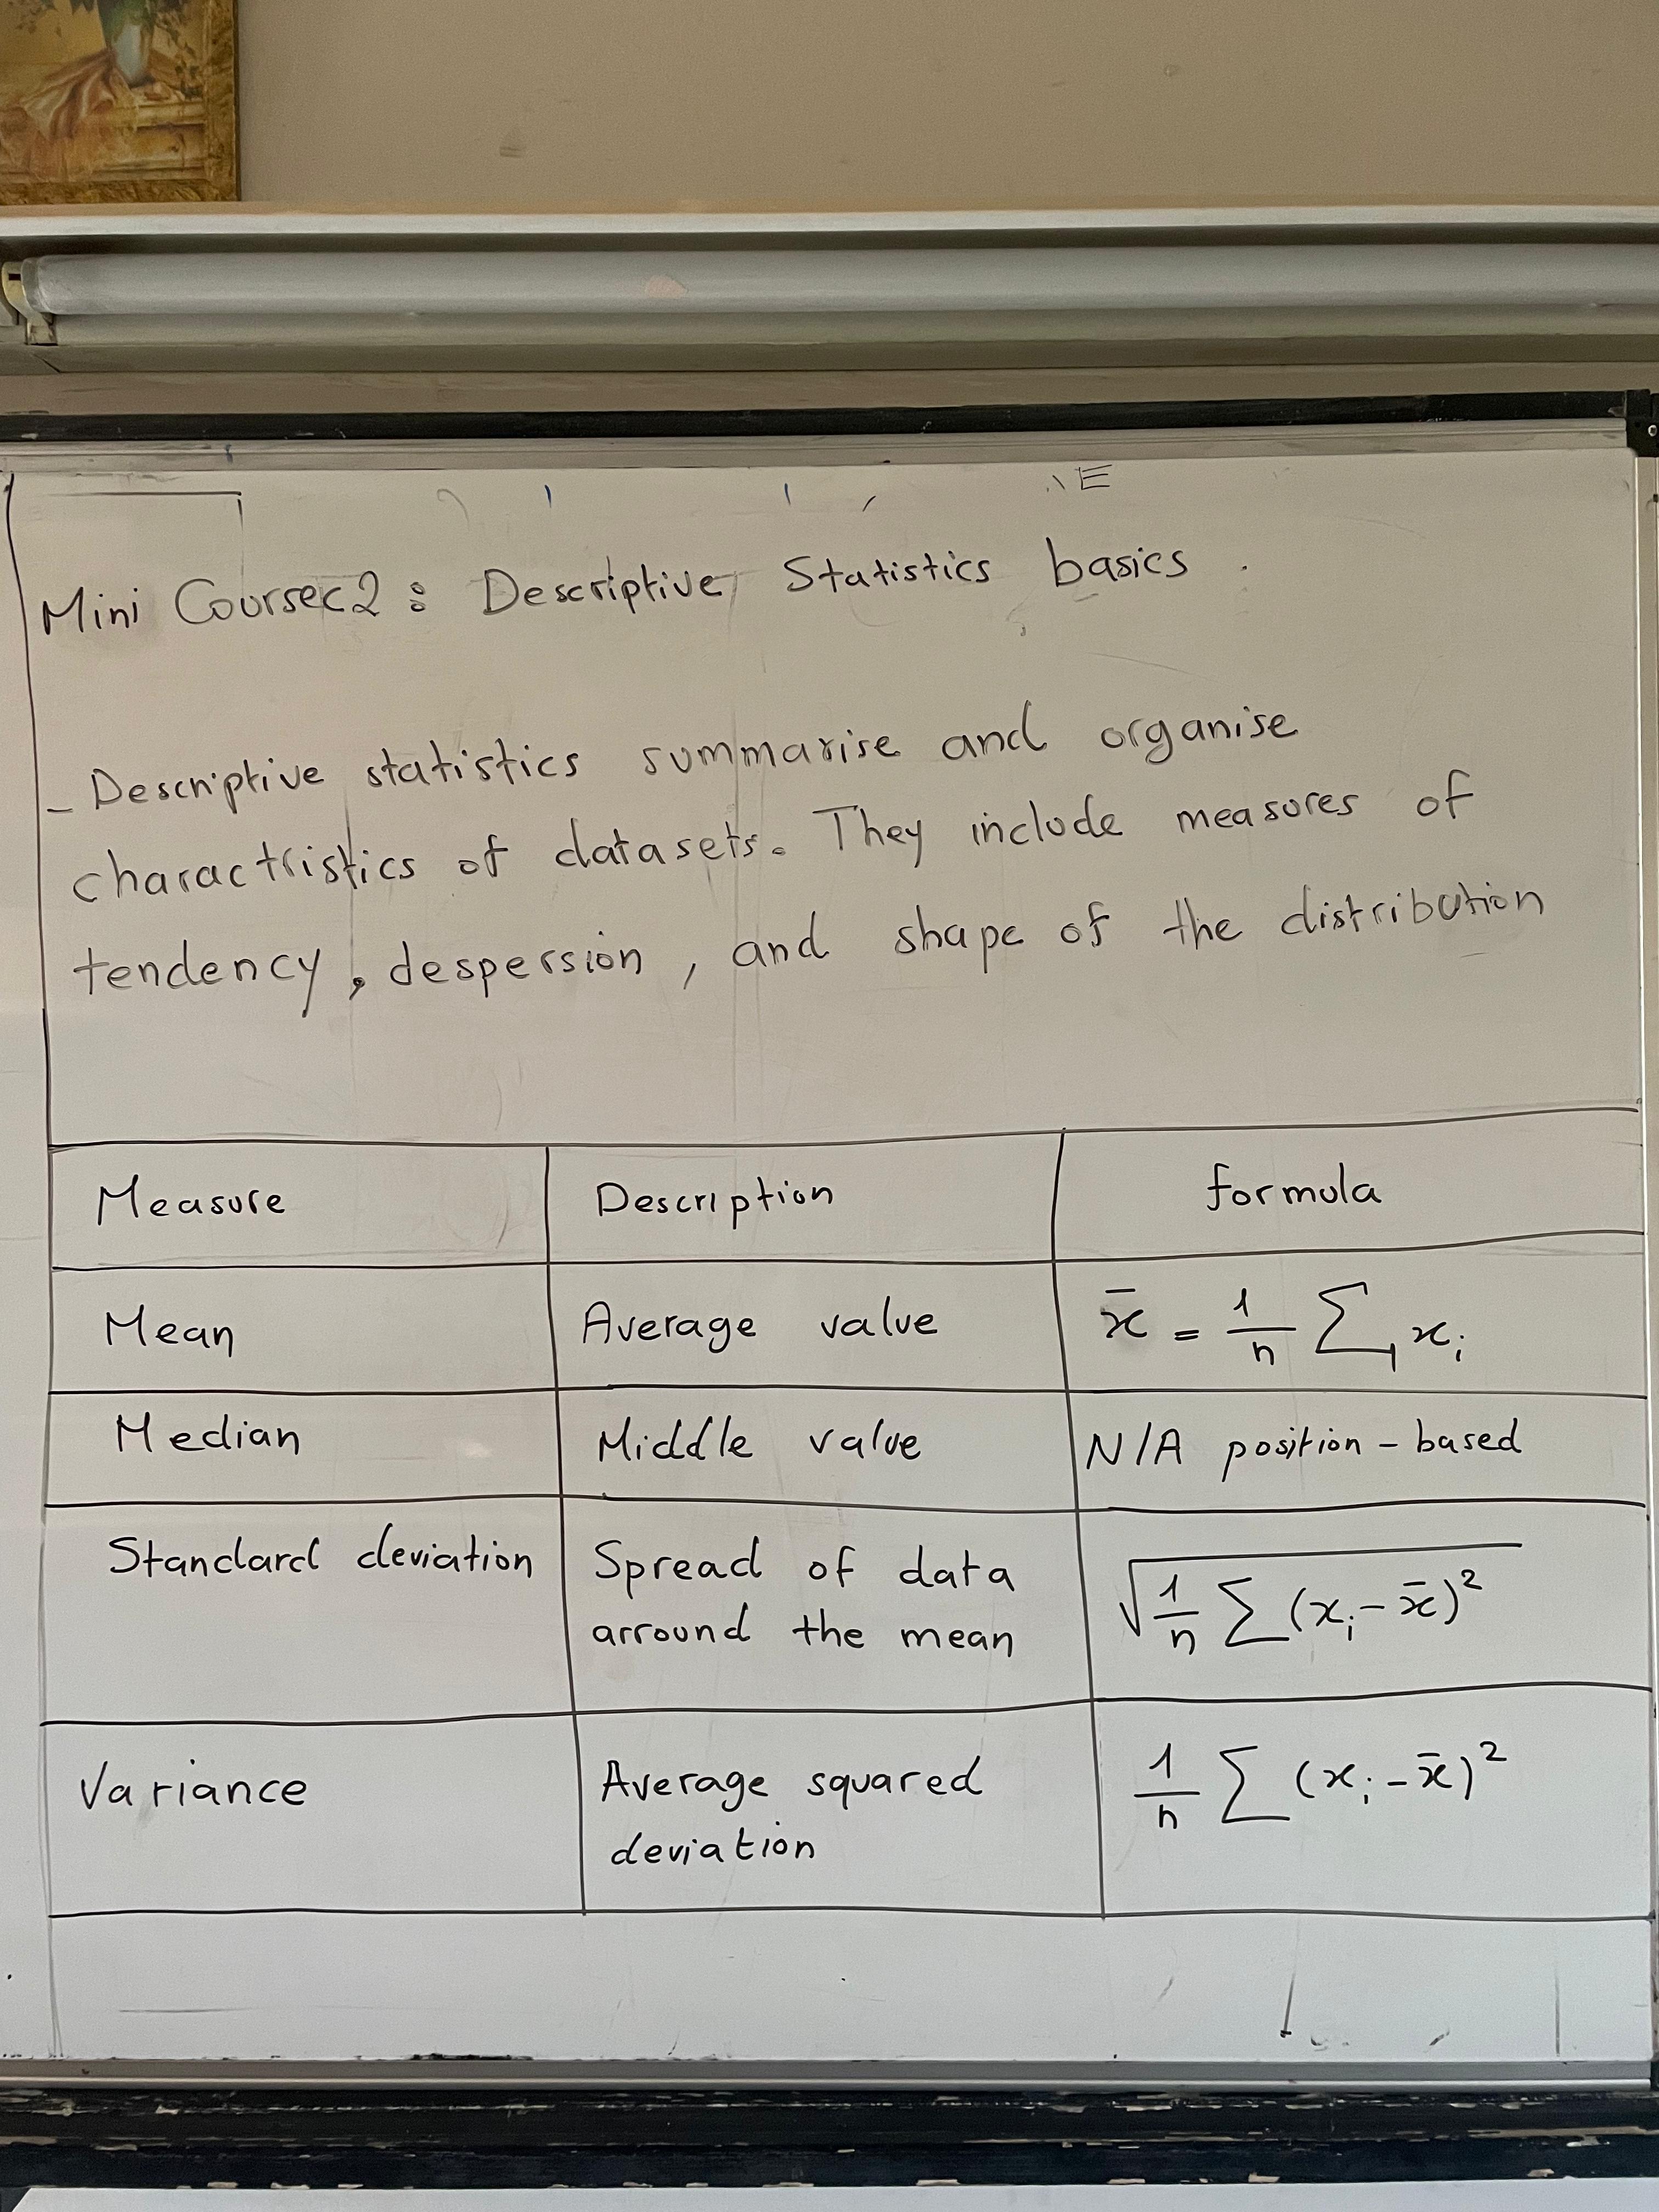 Mini Course 2 : Descriptive Statistics basics .
- Descriptive statistics summarise and organise
charactristics of datasets. They include measures of
tendency, despersion, and shape of the distribution
Measure | Description | formula
Mean | Average value | x̄ = 1/n ∑ xᵢ
Median | Middle value | N/A position - based
Standard deviation | Spread of data
arround the mean | √(1/n ∑ (xᵢ - x̄)²)
Variance | Average squared
deviation | 1/n ∑ (xᵢ - x̄)²